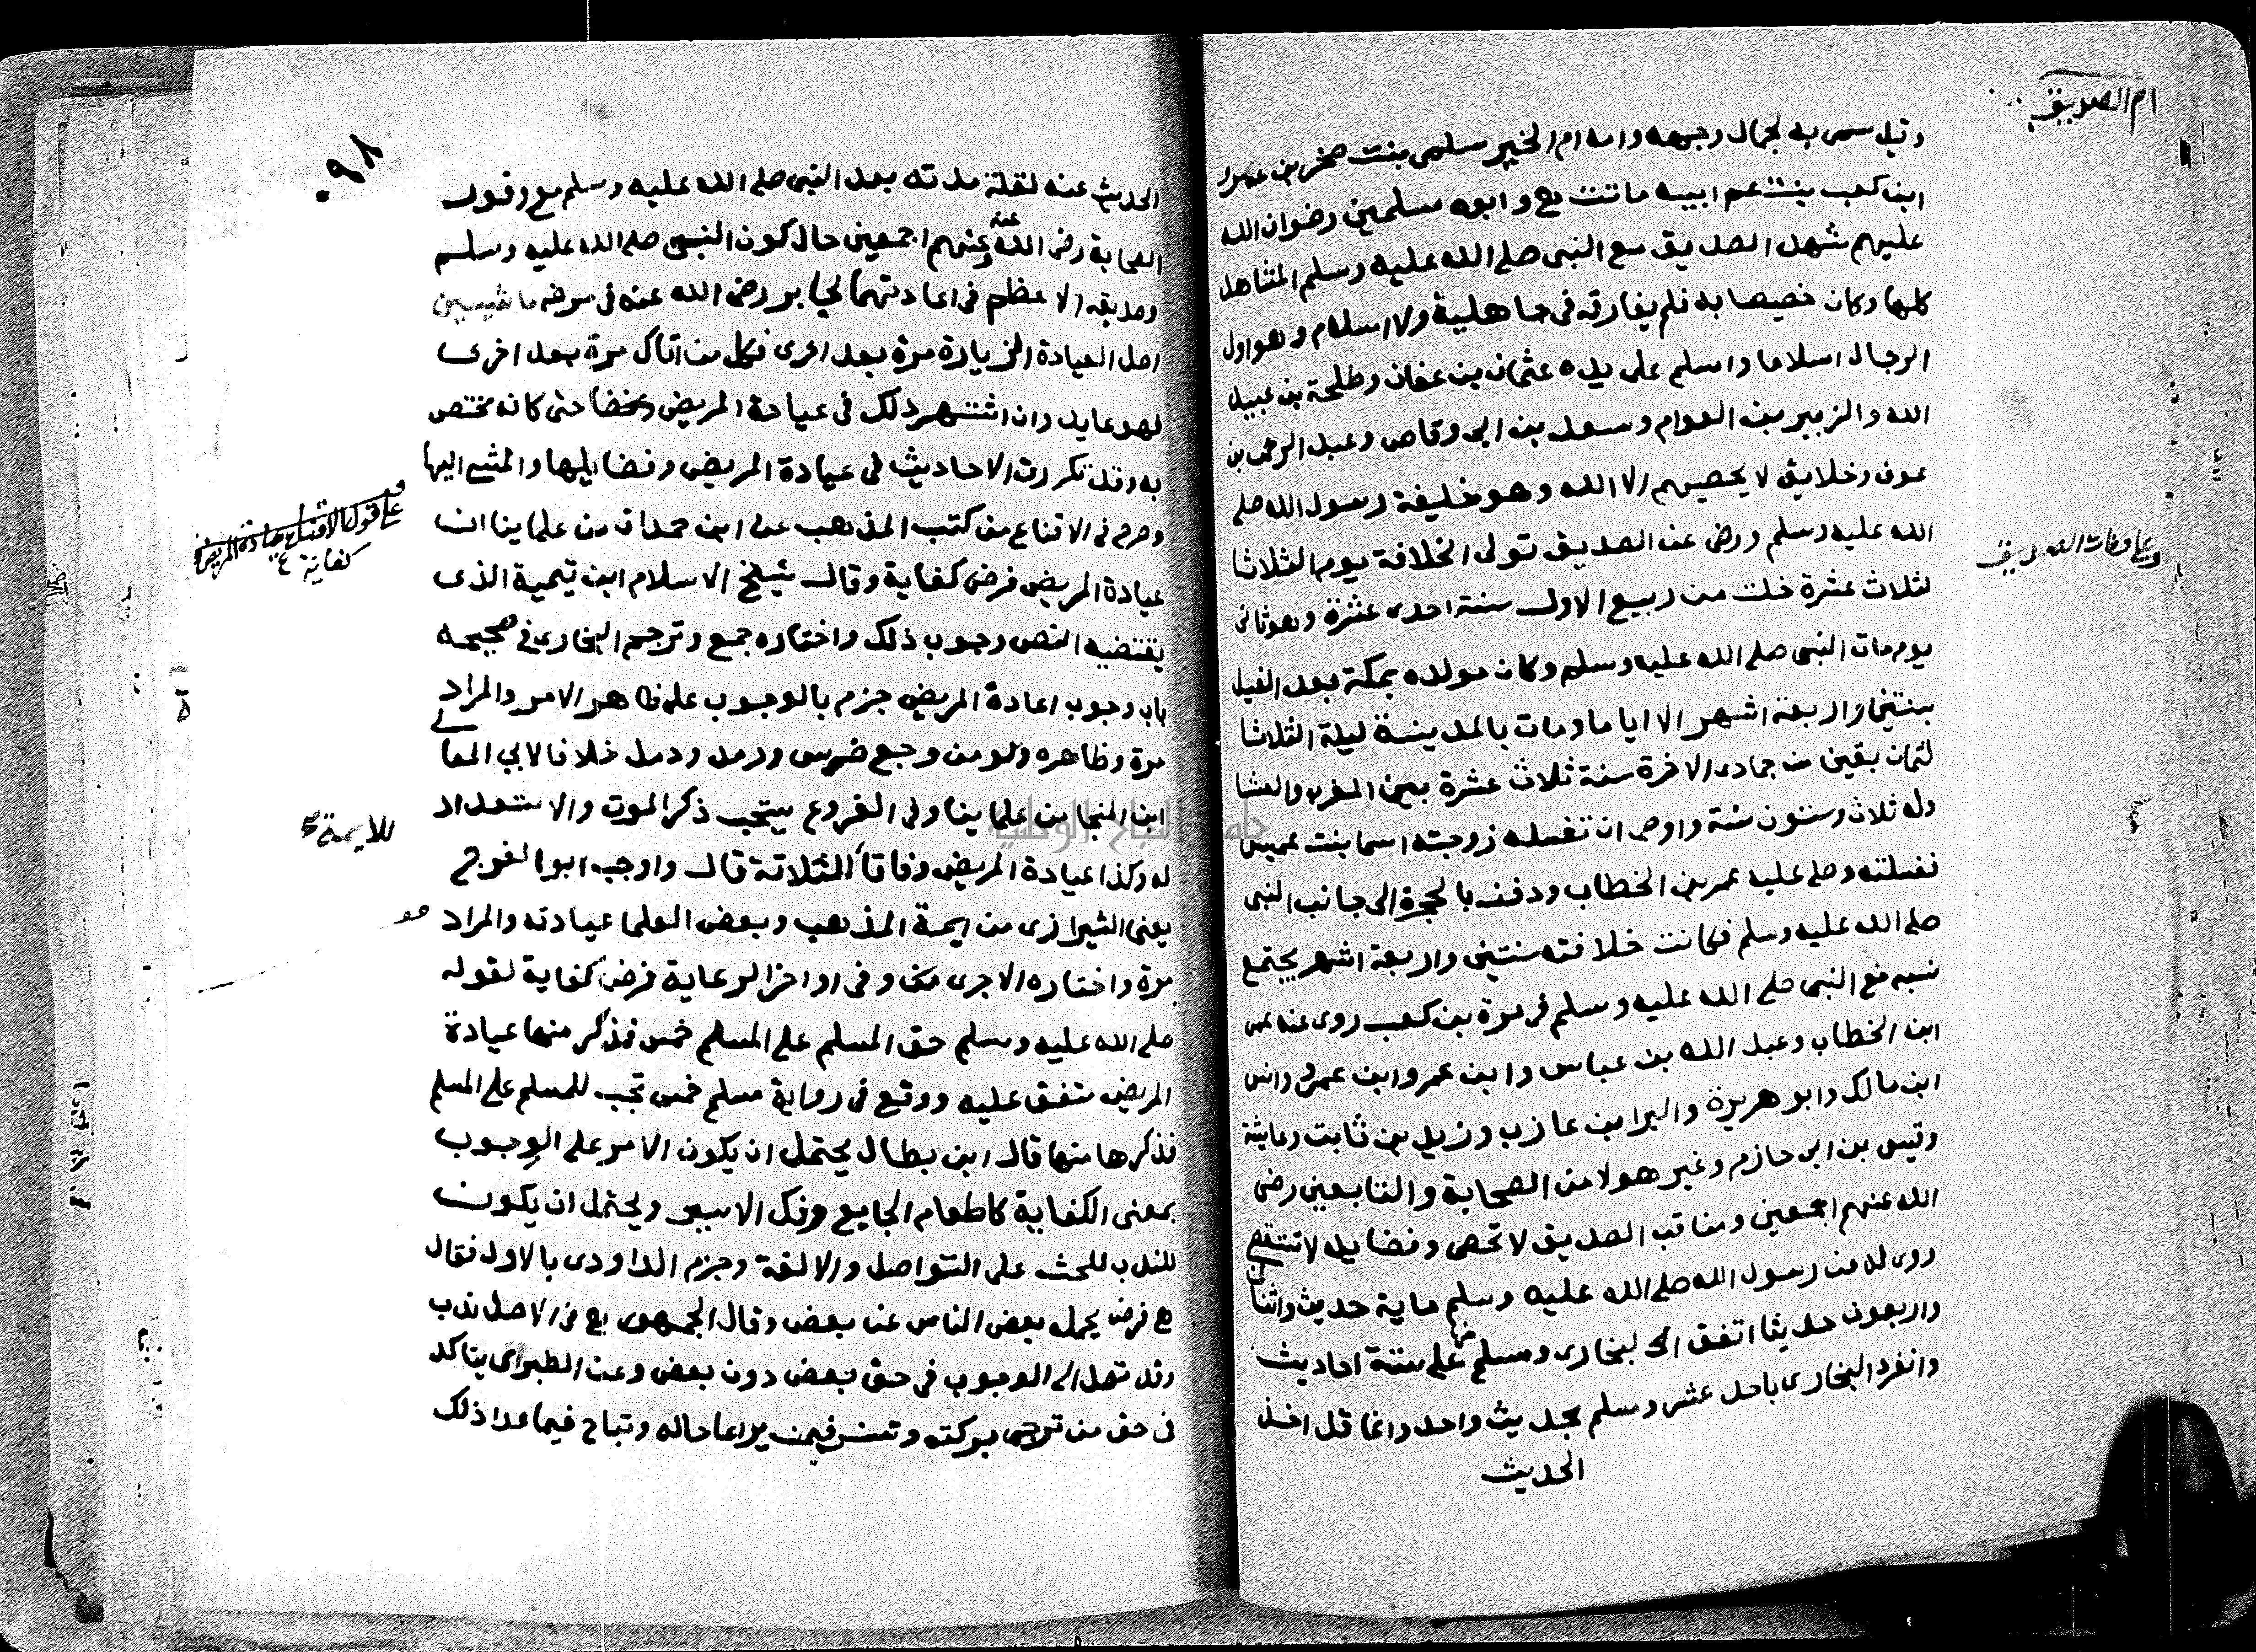 ام الصديق
وقيل سمى به لجمال وجهه وامه ام الخير سلمى بنت صخر بن عامر
ابن كعب بنت عم ابيه ماتت هي وابوه مسلمين رضوان الله
عليهم شهد الصديق مع النبي صلى الله عليه وسلم المشاهد
كلها وكان خصيصا به فلم يفارقه في جاهلية ولا اسلام وهو اول
الرجال اسلاما واسلم على يده عثمان بن عفان وطلحة بن عبيد
الله والزبير بن العوام وسعد بن ابي وقاص وعبد الرحمن بن
عوف وخلايق لا يحصيهم الا الله وهو خليفة رسول الله صلى
الله عليه وسلم ورضي عنه الصديق تولى الخلافة يوم الثلاثا
وفات الصديق
لثلاث عشرة خلت من ربيع الاول سنة احدى عشرة وهو ثاني
يوم مات النبي صلى الله عليه وسلم وكان مولده بمكة بعد الفيل
بسنتين واربعة اشهر الا اياما ومات بالمدينة ليلة الثلاثا
لثمان بقين من جمادى الاخرة سنة ثلاث عشرة بين المغرب والعشا
وله ثلاث وستون سنة واوصى ان تغسله زوجته اسما بنت عميس
فغسلته وصلى عليه عمر بن الخطاب ودفنه بالحجرة الى جانب النبي
صلى الله عليه وسلم فكانت خلافته سنتين واربعة اشهر يجتمع
نسبه مع النبي صلى الله عليه وسلم في مرة بن كعب روى عنه عمر
ابن الخطاب وعبد الله بن عباس وابن عمر وابن عمرو وانس
ابن مالك وابو هريرة والبرا بن عازب وزيد بن ثابت وعايشة
وقيس بن ابي حازم وغير هولا من الصحابة والتابعين رضي
الله عنهم اجمعين ومناقب الصديق لا تحصى وفضايله لا تستقصى
روى له من رسول الله صلى الله عليه وسلم ماية حديث واثنان
واربعون حديثا اتفق البخارى ومسلم منها على ستة احاديث
وانفرد البخارى باحد عشر ومسلم بحديث واحد وانما قل اخذ
الحديث
٩٨
الحديث عنه لقلة مدته بعد النبي صلى الله عليه وسلم مع وفور
الصحابة رضي الله عنه وعنهم اجمعين حال كون النبي صلى الله عليه وسلم
وصديقه الاعظم في اعادتهما لجابر رضي الله عنه في مرضه ماشيين
اصل العيادة الزيارة مرة بعد اخرى فكل من اتاك مرة بعد اخرى
فهو عايد وان اشتهر ذلك في عيادة المريض حتى كانه مختص
به وقد تكررت الاحاديث في عيادة المريض وفضايلها والمشي اليها
وصرح في الاقناع من كتب المذهب عن ابن حمدان من علماينا ان
على قول الاقناع عيادة المريض فرض
كفاية
عيادة المريض فرض كفاية وقال شيخ الاسلام ابن تيمية الذى
يقتضيه النص وجوب ذلك واختاره جمع وترجم البخارى في صحيحه
باب وجوب اعادة المريض جزم بالوجوب على ظاهر الامر والمراد
مرة وظاهره ولو من وجع ضرس ورمد ودمل خلافا لابي المعالي
ابن المنجا من علماينا وفي الفروع يستحب ذكر الموت والاستعداد
للايمة
له وكذا عيادة المريض وفاقا الثلاثة قال واوجب ابو الفرج
يعني الشيرازى من ايمة المذهب وبعض العلما عيادته والمراد
مرة واختاره الاجرى وفي اواخر الرعاية فرض كفاية لقوله
صلى الله عليه وسلم حق المسلم على المسلم خمس فذكر منها عيادة
المريض متفق عليه ووقع في رواية مسلم خمس تجب للمسلم على المسلم
فذكرها منها قال ابن بطال يحتمل ان يكون الامر على الوجوب
بمعنى الكفاية كاطعام الجايع وفك الاسير ويحتمل ان يكون
للندب للحث على التواصل والالفة وجزم الداودى بالاول فقال
هي فرض يحمله بعض الناس عن بعض وقال الجمهور هي في الاصل ندب
وقد تصل الى الوجوب في حق بعض دون بعض وعن الطبراى يتاكد
في حق من ترجى بركته وتسن فيمن يراعا حاله وتباح فيما عدا ذلك
جامعة النجاح الوطنية